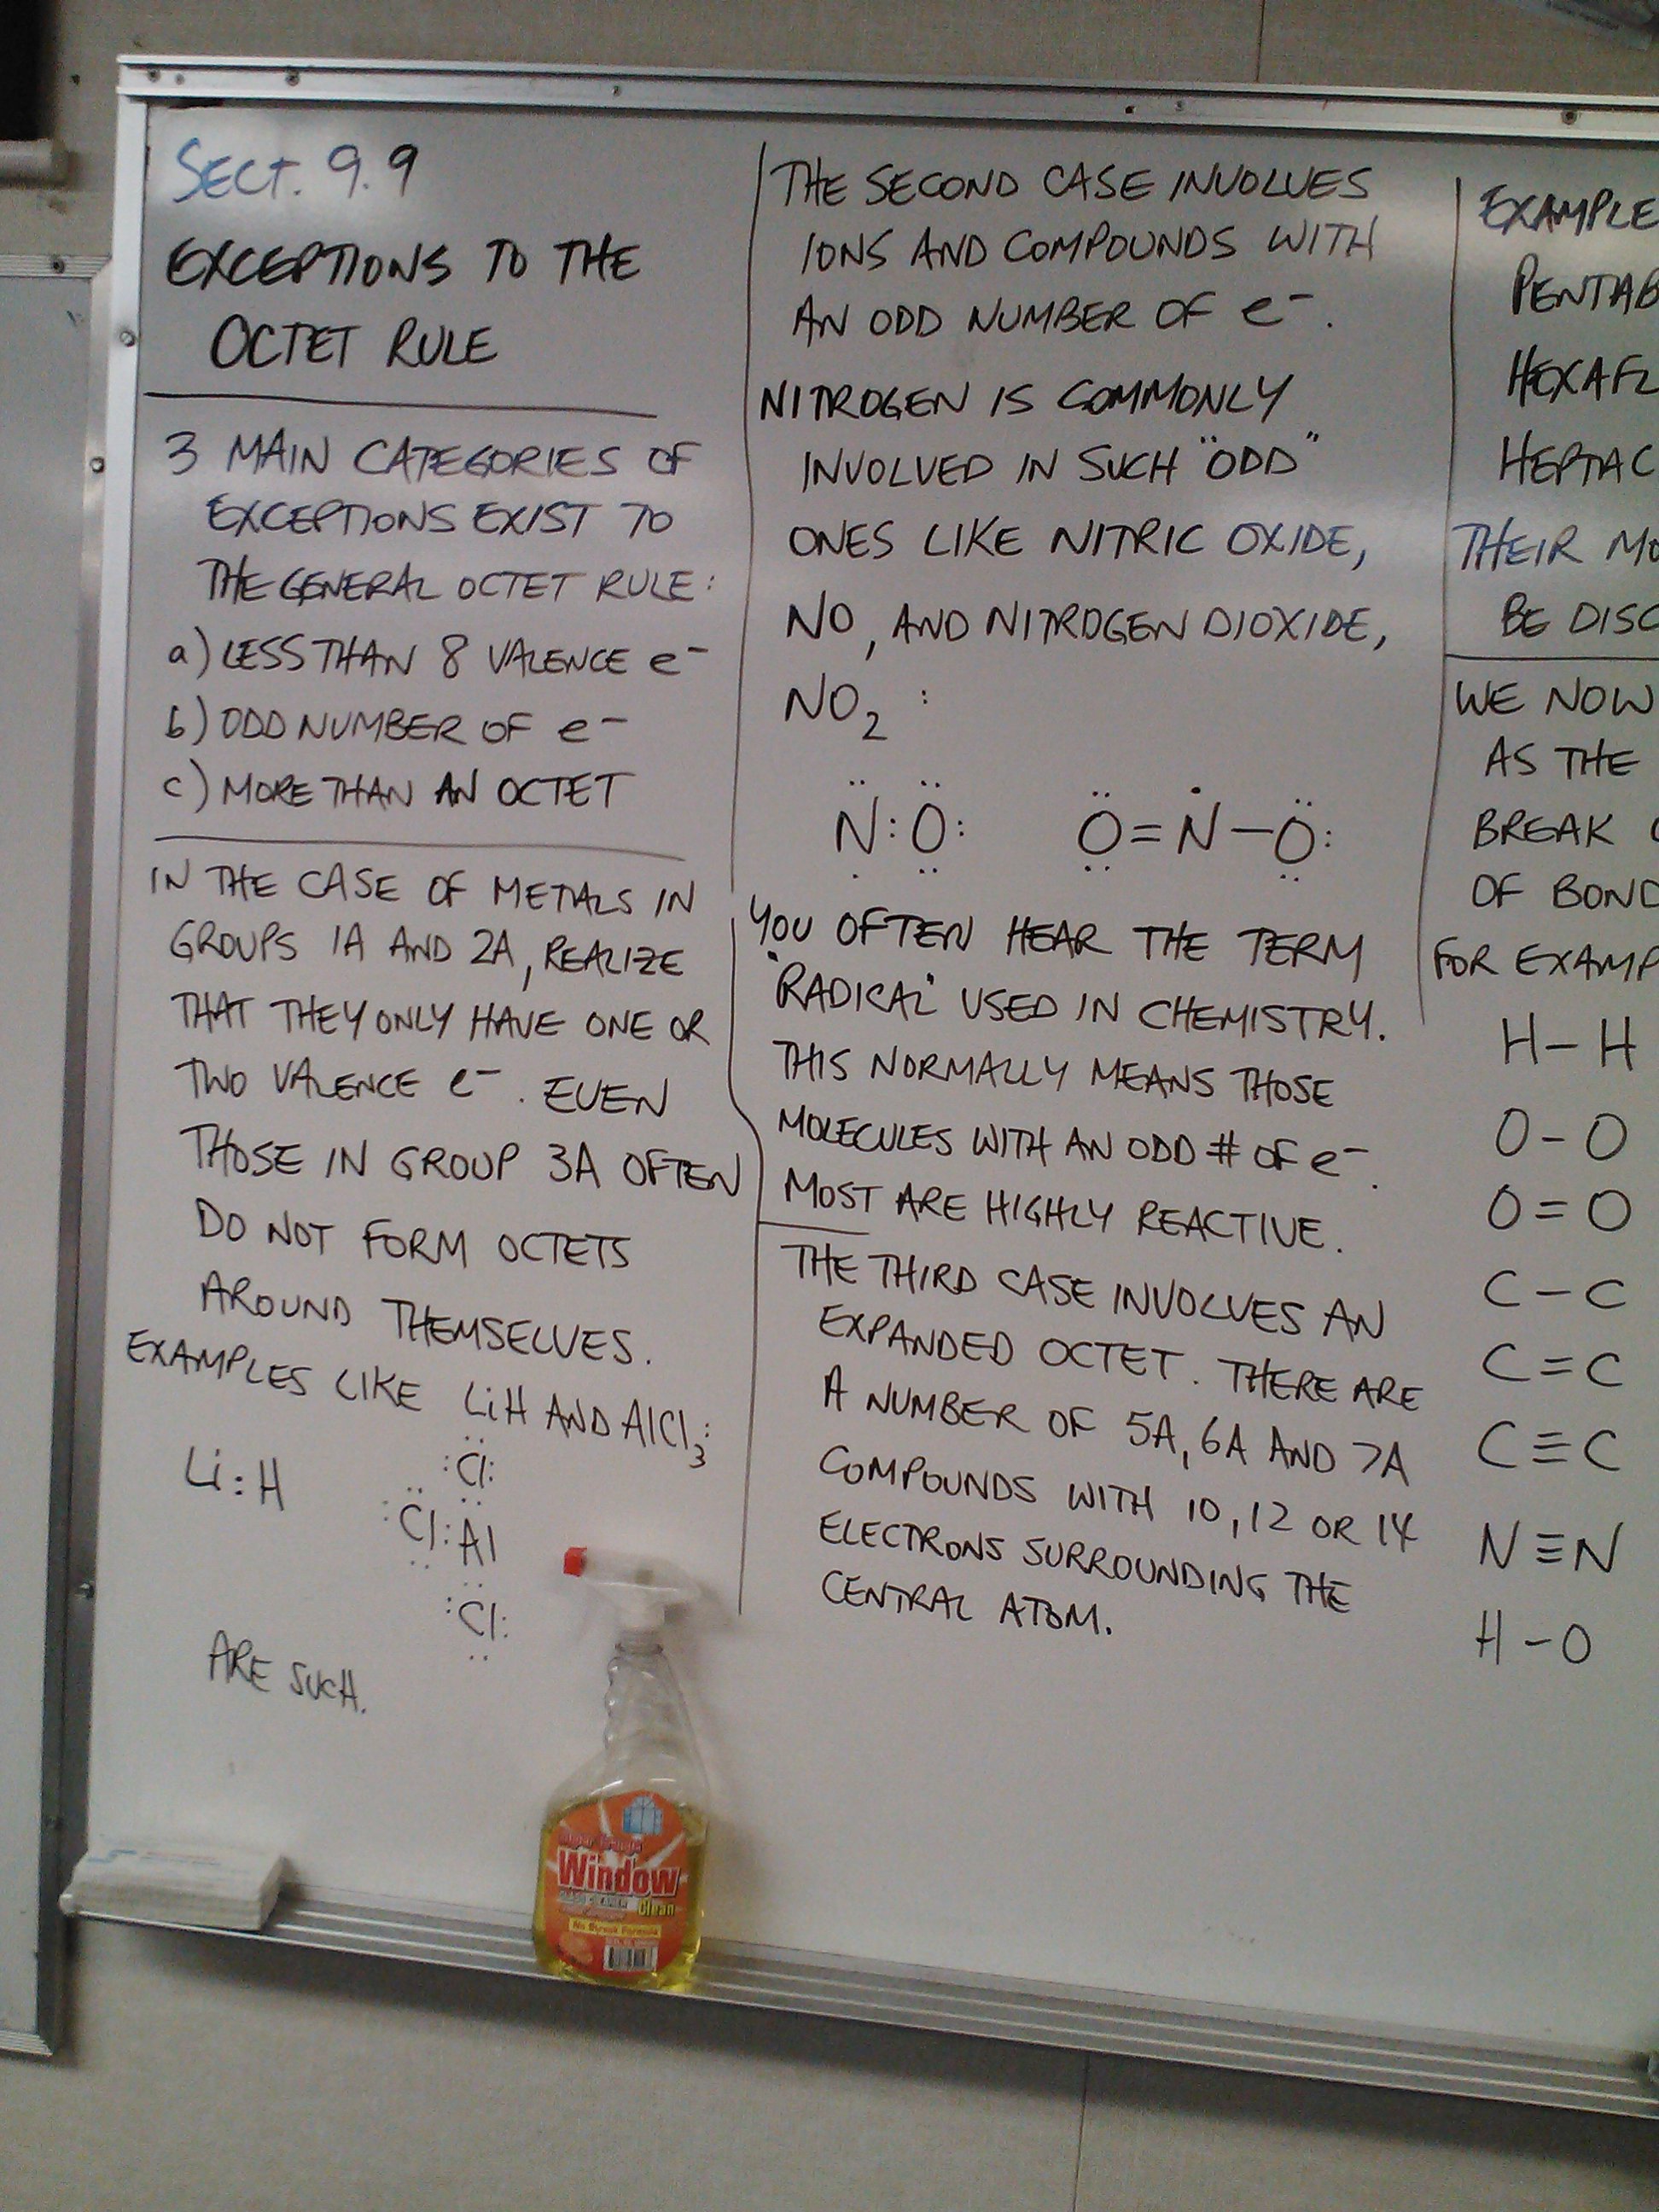 SECT. 9.9
EXCEPTIONS TO THE
OCTET RULE
3 MAIN CATEGORIES OF
EXCEPTIONS EXIST TO
THE GENERAL OCTET RULE:
a) LESS THAN 8 VALENCE e⁻
b) ODD NUMBER OF e⁻
c) MORE THAN AN OCTET
IN THE CASE OF METALS IN
GROUPS 1A AND 2A, REALIZE
THAT THEY ONLY HAVE ONE OR
TWO VALENCE e⁻. EVEN
THOSE IN GROUP 3A OFTEN
DO NOT FORM OCTETS
AROUND THEMSELVES.
EXAMPLES LIKE LiH AND AlCl₃:
Li:H
:Cl:
:Cl:Al
:Cl:
ARE SUCH.
THE SECOND CASE INVOLVES
IONS AND COMPOUNDS WITH
AN ODD NUMBER OF e⁻.
NITROGEN IS COMMONLY
INVOLVED IN SUCH "ODD"
ONES LIKE NITRIC OXIDE,
NO, AND NITROGEN DIOXIDE,
NO₂ :
N:O: O=N-O:
YOU OFTEN HEAR THE TERM
"RADICAL" USED IN CHEMISTRY.
THIS NORMALLY MEANS THOSE
MOLECULES WITH AN ODD # OF e⁻.
MOST ARE HIGHLY REACTIVE.
THE THIRD CASE INVOLVES AN
EXPANDED OCTET. THERE ARE
A NUMBER OF 5A, 6A AND 7A
COMPOUNDS WITH 10, 12 OR 14
ELECTRONS SURROUNDING THE
CENTRAL ATOM.
EXAMPLE
PENTAB
HEXAFL
HEPTAC
THEIR MO
BE DISC
WE NOW
AS THE
BREAK
OF BOND
FOR EXAMP
H-H
O-O
O=O
C-C
C=C
C≡C
N≡N
H-O
Window
Clean
No Streak Formula